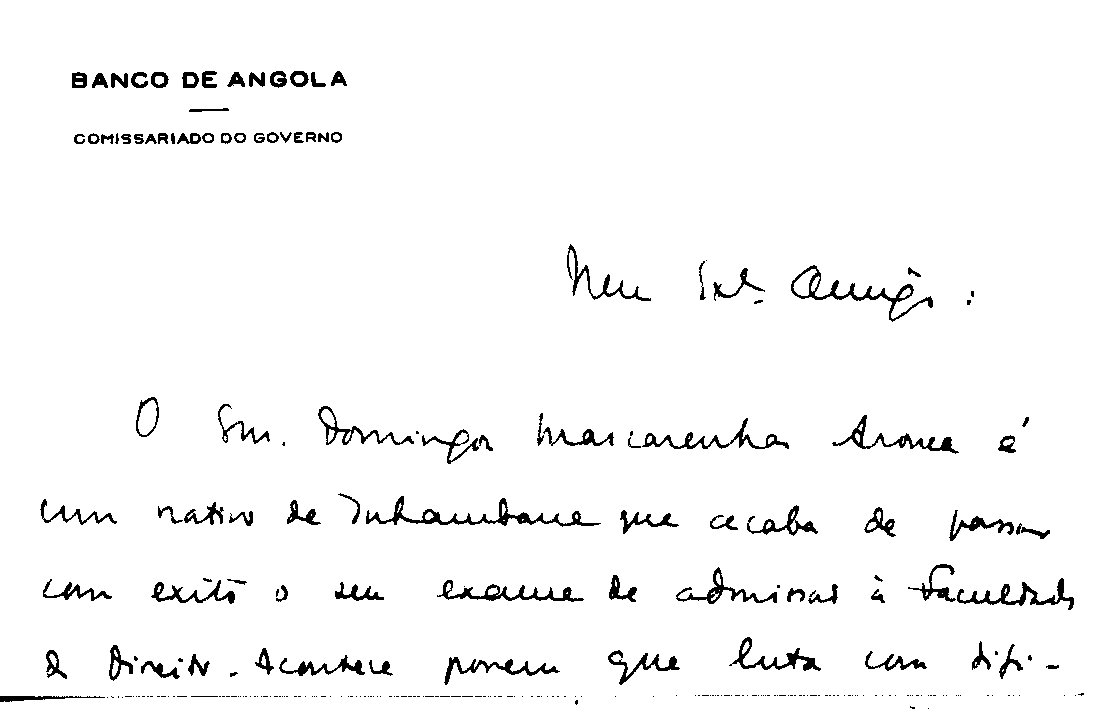 BANCO DE ANGOLA
COMISSARIADO DO GOVERNO
Meu Exº. Amigo:
O Snr. Domingos Mascarenhas Arouca é
um nativo de Inhambane que acaba de passar
com exito o seu exame de admissão à Faculdade
de Direito. Acontece porem que luta com difi-